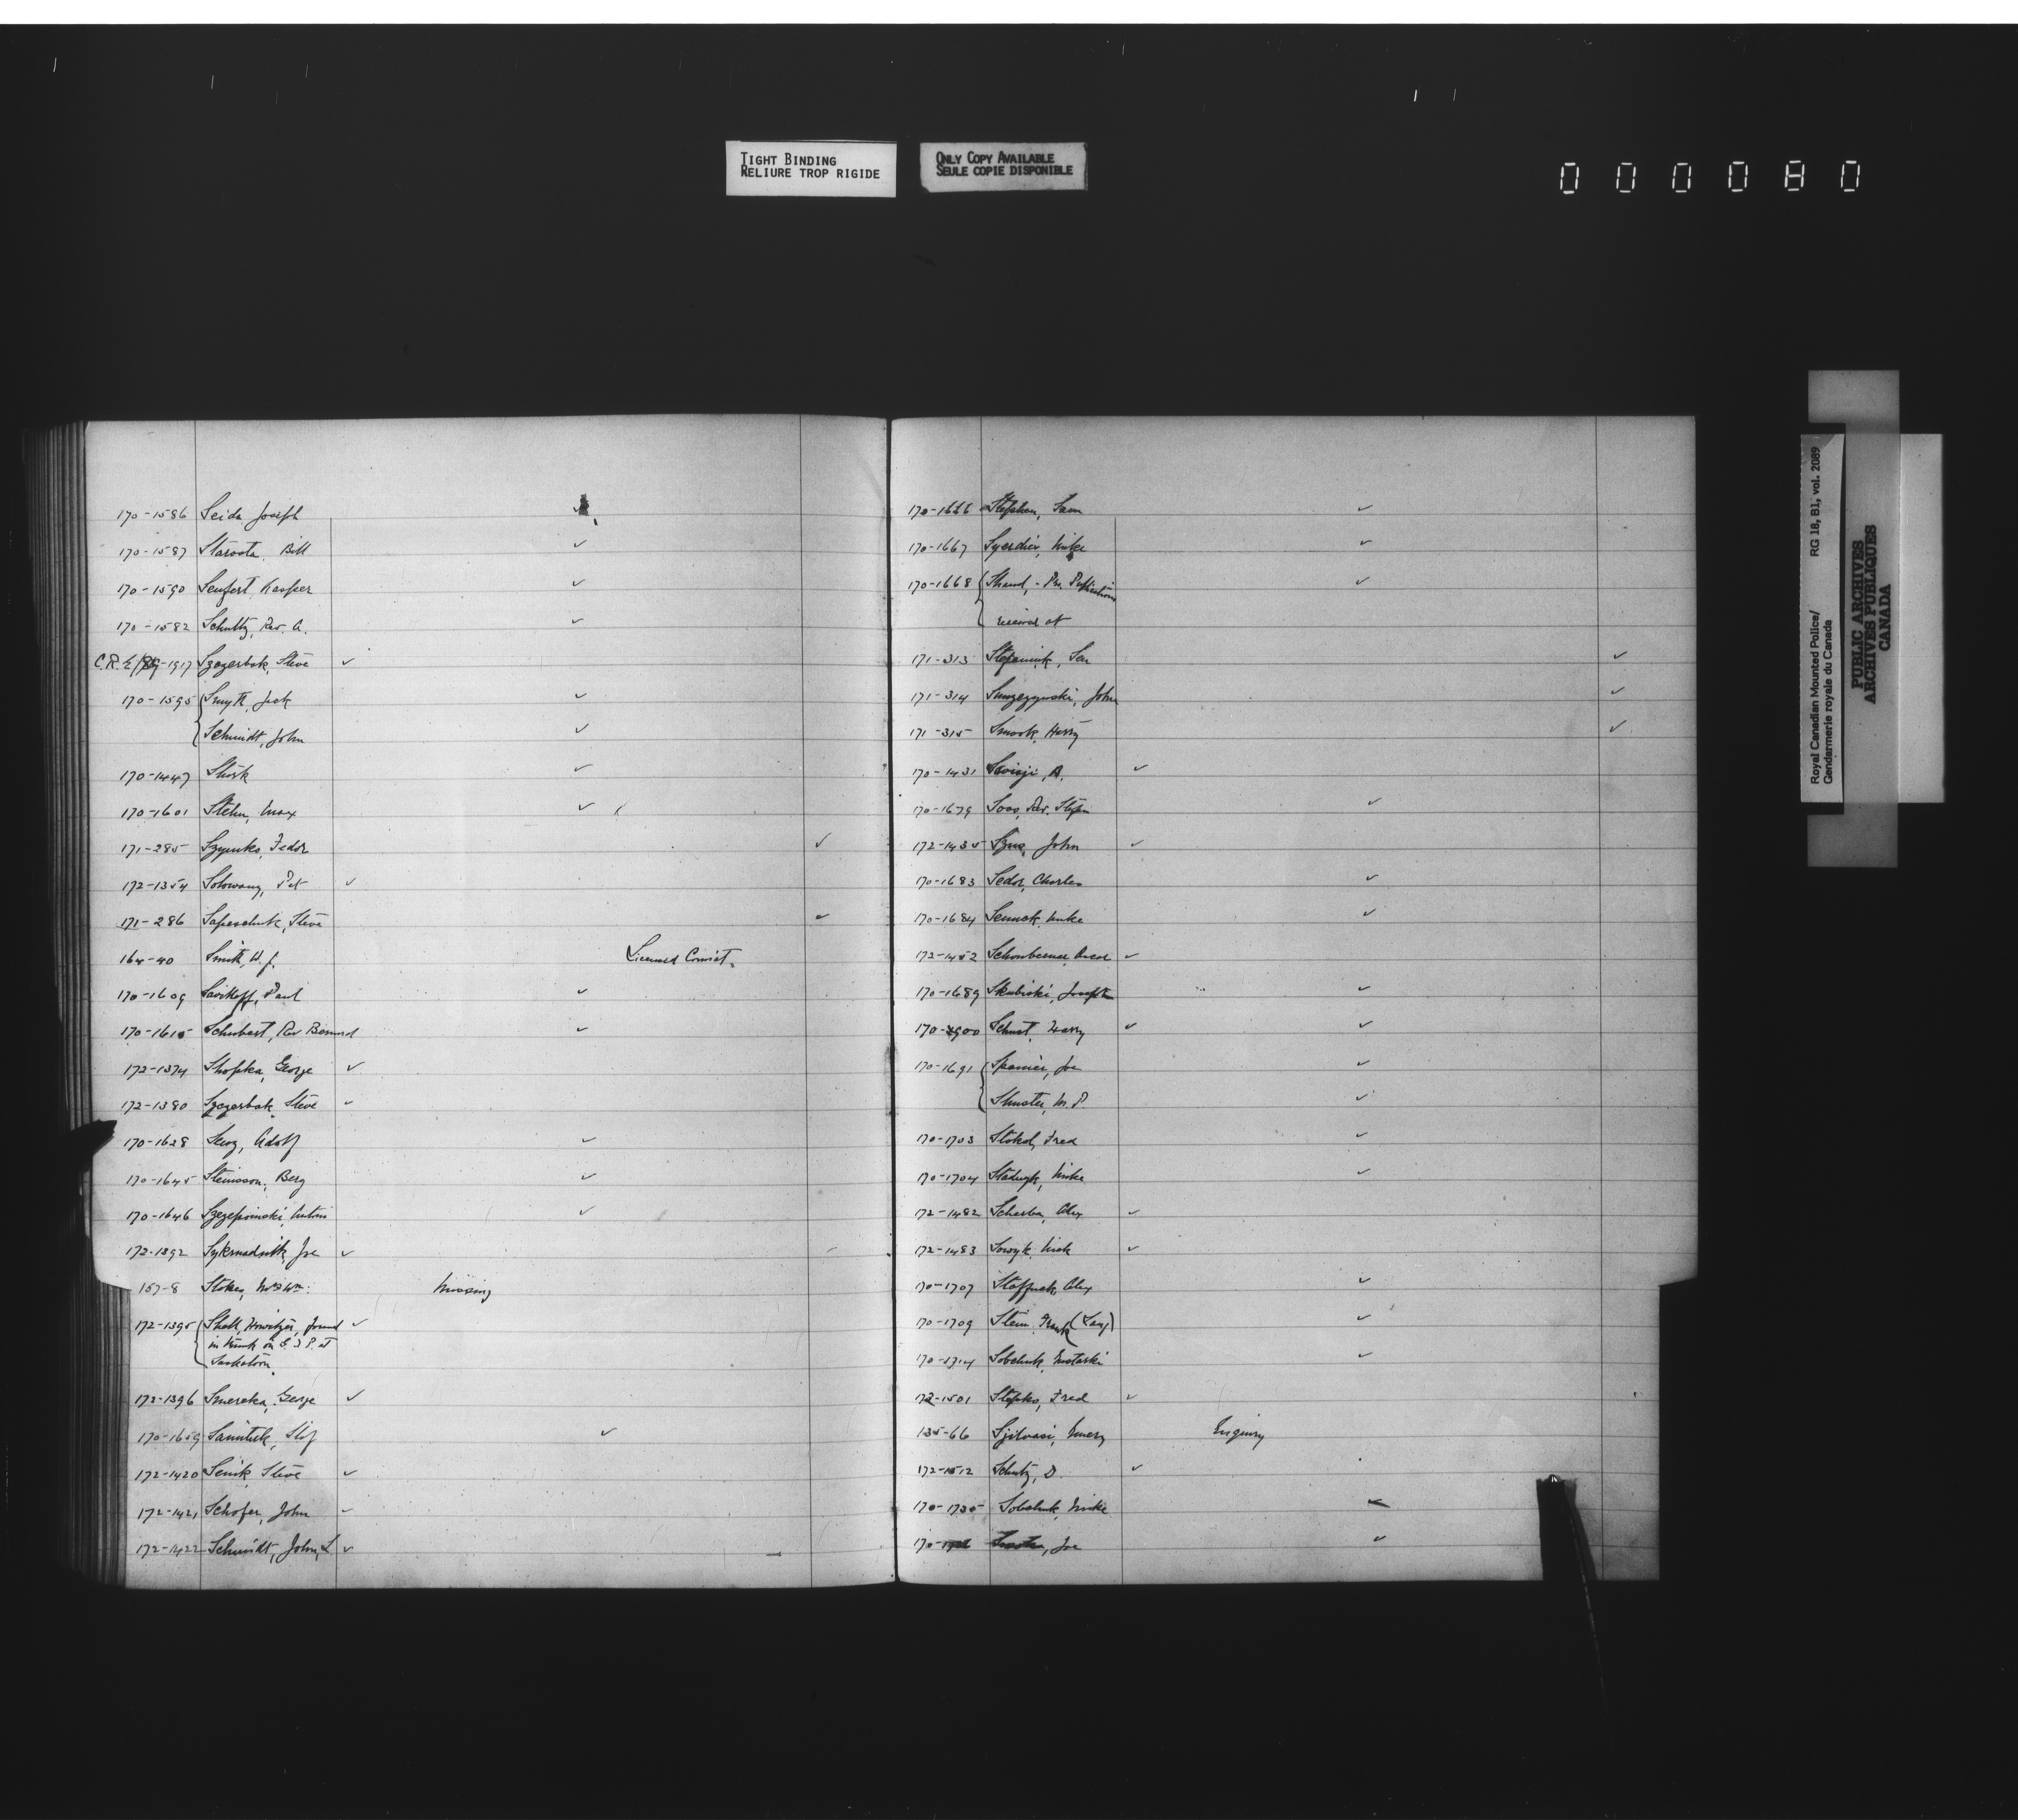 TIGHT BINDING
RELIURE TROP RIGIDE
ONLY COPY AVAILABLE
SEULE COPIE DISPONIBLE
000080
170-1586 Seida Joseph ✓
170-1587 Starosta, Bill ✓
170-1590 Seufert, Kasper ✓
170-1582 Schultz, Rev. A. ✓
C.R.E/ -1917 Szczerbak, Steve ✓
170-1595 Smyth, Jack ✓
Schmidt, John ✓
170-1447 Stork ✓
170-1601 Stehn, Max ✓
171-285 Szymko, Fedor ✓
172-1354 Solowany, Pet ✓
171-286 Sapeschuk, Steve ✓
164-40 Smith, W. J. Licensed Convict.
170-1609 Savikoff, Paul ✓
170-1615 Schubert, Rev Bernard ✓
172-1374 Shopka, George ✓
172-1380 Szczerbak, Steve ✓
170-1628 Adolf ✓
170-1645 Steinsson, Berg ✓
170-1646 Szczepoinski, Antoni ✓
172-1392 Joe ✓
157-8 Stokes, Mrs Wm: Missing
172-1395 Shell, Howitzer, found ✓
in trunk on G.T.P. at
Saskatoon
172-1396 Smereka, George ✓
170-1659 ✓
172-1420 Senik, Steve ✓
172-1421 Schofer, John ✓
172-1422 Schmidt, John, L ✓
170-1666 Stephen, Sam ✓
170-1667 Syerdiev, Mike ✓
170-1668 Strand, - Pro. Publications ✓
received at
171-313 ✓
171-314 John ✓
171-315 Smook, Harry ✓
170-1431 A. ✓
170-1679 Soos, Rev. Stefan ✓
172-1435 John ✓
170-1683 Sedor, Charles ✓
170-1684 Mike ✓
172-1452 ✓
170-1689 Skubiski, Joseph ✓
170- Harry ✓ ✓
170-1691 Joe ✓
Shuster, M. P. ✓
170-1703 Stokol, Fred ✓
170-1704 Stadnyk, Mike ✓
172-1482 Scherba, Alex ✓
172-1483 Nick ✓
170-1707 Alex ✓
170-1709 Stein, Frank ✓
170-1714 Sobchuk ✓
172-1501 Stepko, Fred ✓
135-66 Enquiry
172-1512 Schutz, D. ✓
170-1735 Sobchuk, Mike ✓
170- Joe ✓
Royal Canadian Mounted Police/ RG 18, B1, vol. 2089
Gendarmerie royale du Canada
PUBLIC ARCHIVES
ARCHIVES PUBLIQUES
CANADA